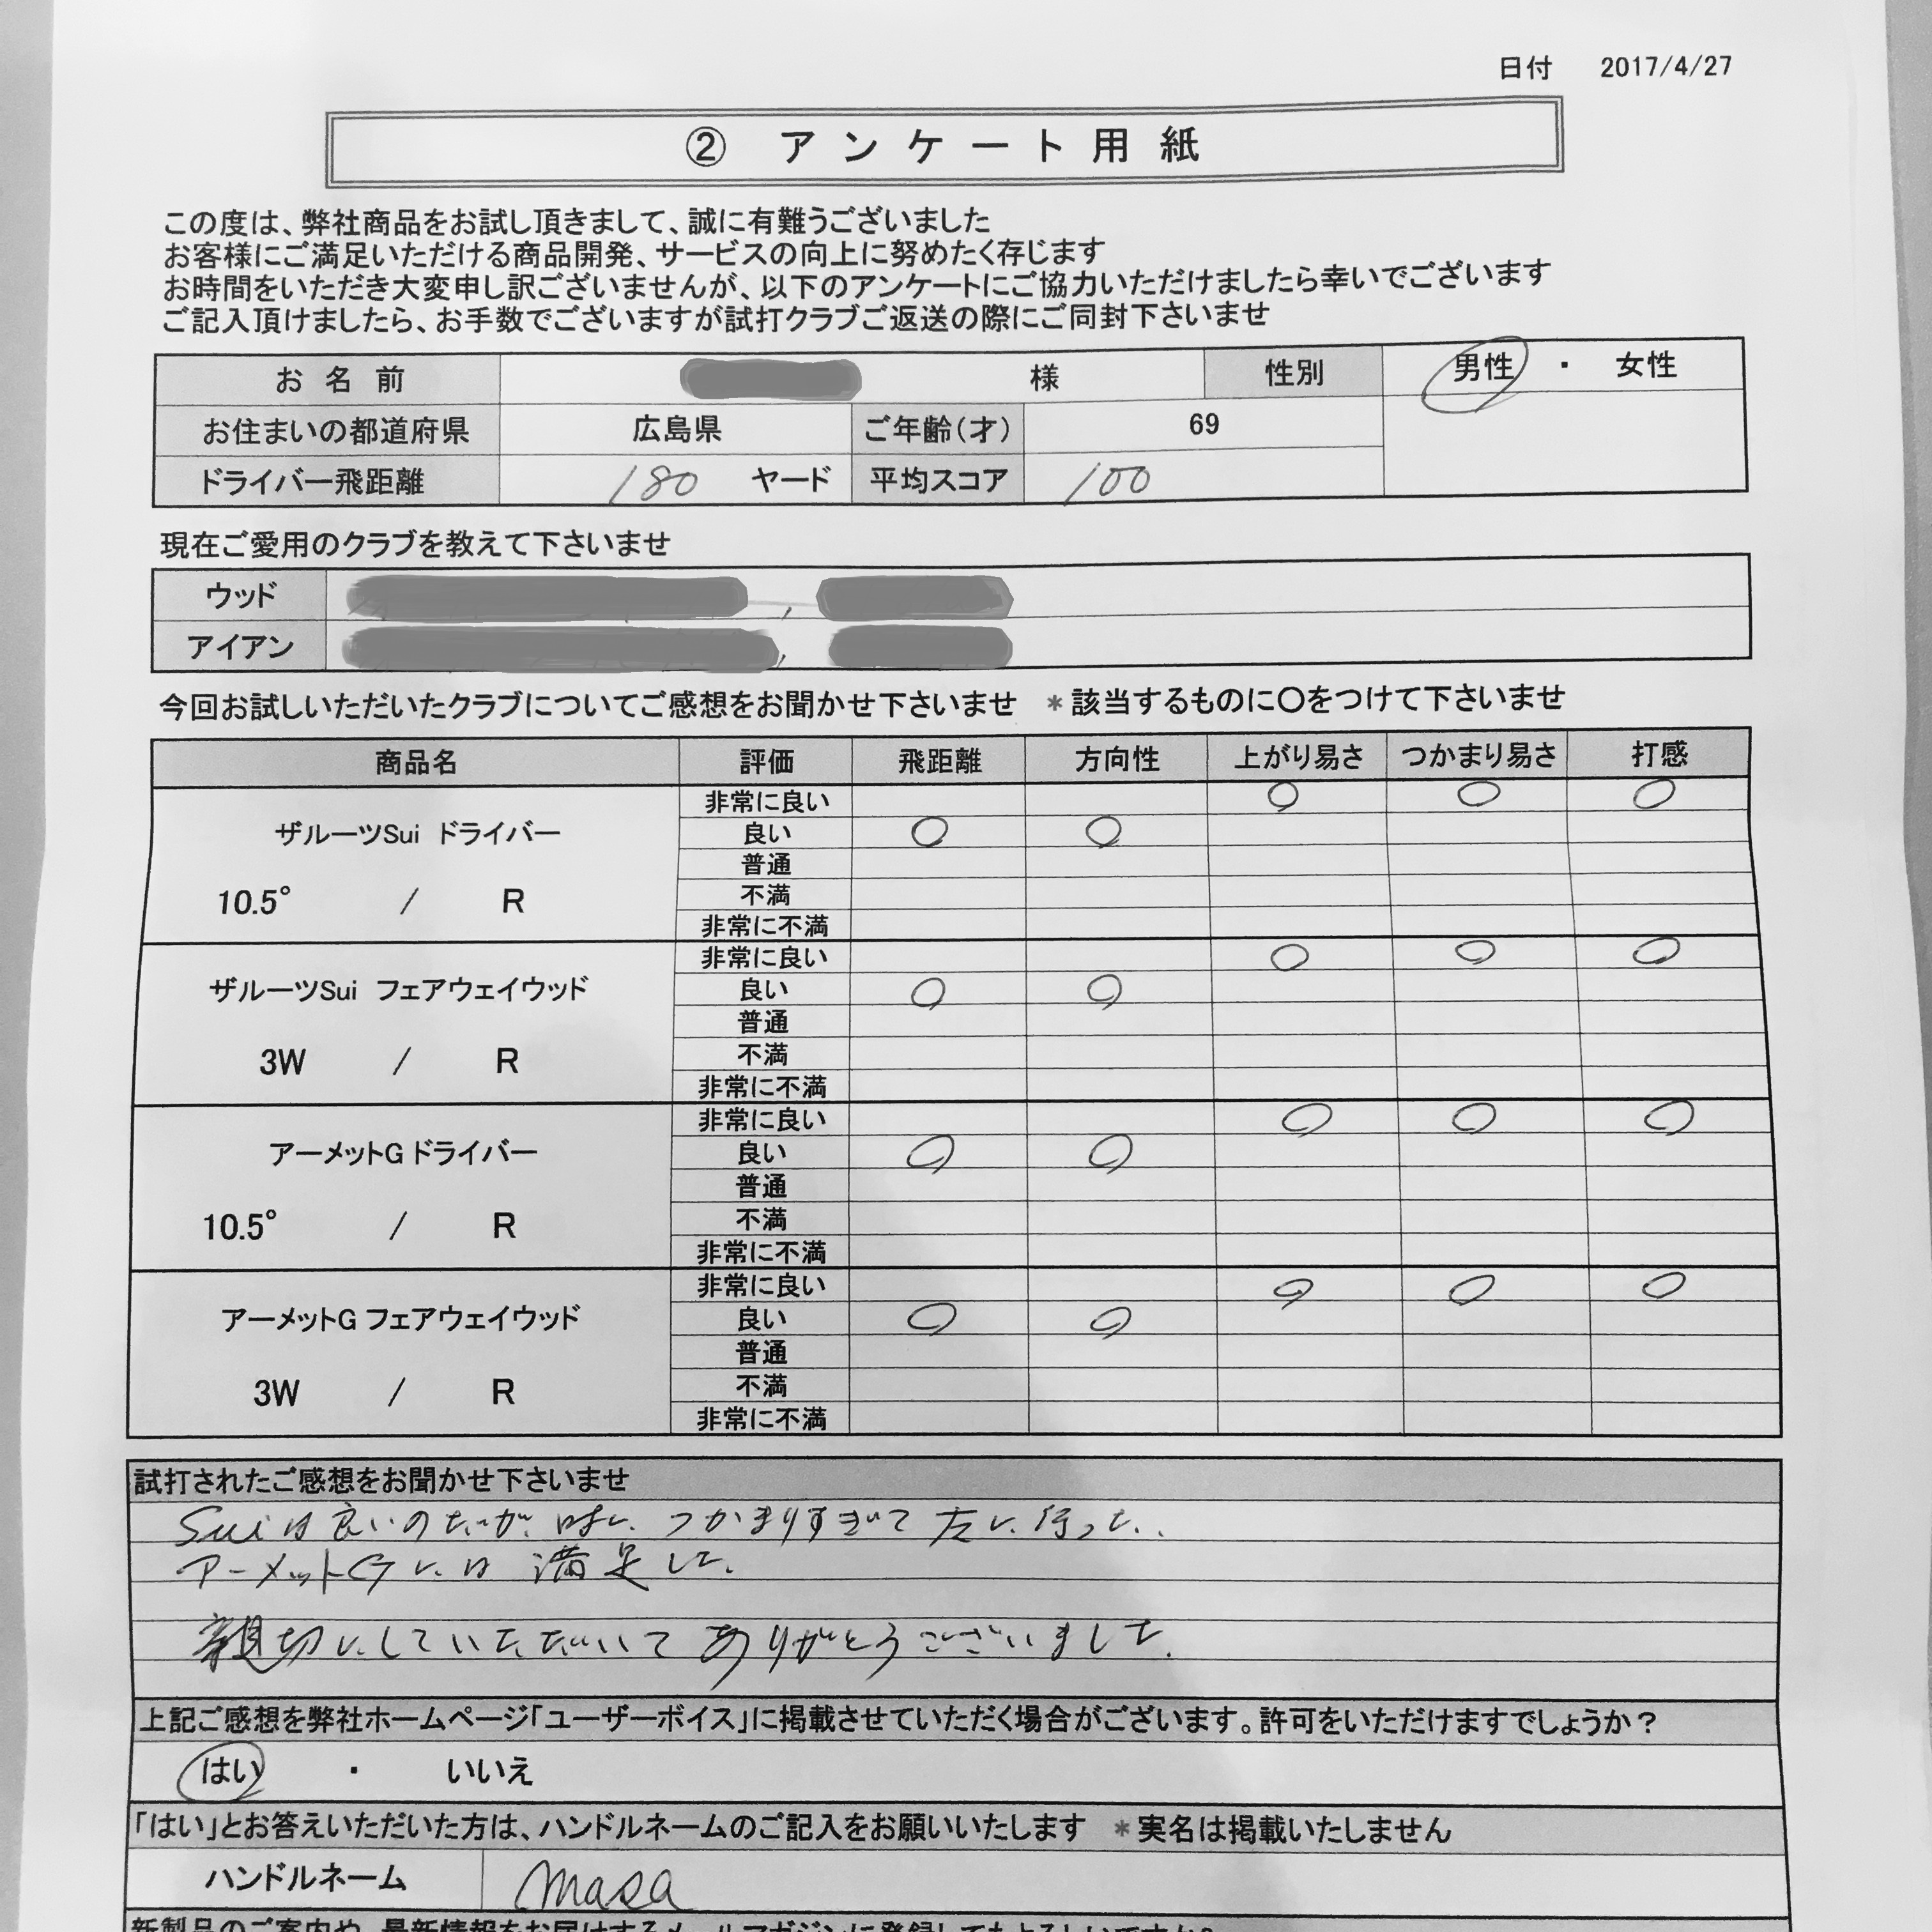 日付 2017/4/27
② アンケート用紙
この度は、弊社商品をお試し頂きまして、誠に有難うございました
お客様にご満足いただける商品開発、サービスの向上に努めたく存じます
お時間をいただき大変申し訳ございませんが、以下のアンケートにご協力いただけましたら幸いでございます
ご記入頂けましたら、お手数でございますが試打クラブご返送の際にご同封下さいませ
お名前 様 性別 男性 ・ 女性
お住まいの都道府県 広島県 ご年齢(才) 69
ドライバー飛距離 180 ヤード 平均スコア 100
現在ご愛用のクラブを教えて下さいませ
ウッド
アイアン
今回お試しいただいたクラブについてご感想をお聞かせ下さいませ *該当するものに〇をつけて下さいませ
商品名 評価 飛距離 方向性 上がり易さ つかまり易さ 打感
ザルーツSui ドライバー
10.5° / R
非常に良い 〇 〇 〇
良い 〇 〇
普通
不満
非常に不満
ザルーツSui フェアウェイウッド
3W / R
非常に良い 〇 〇 〇
良い 〇 〇
普通
不満
非常に不満
アーメットG ドライバー
10.5° / R
非常に良い 〇 〇 〇
良い 〇 〇
普通
不満
非常に不満
アーメットG フェアウェイウッド
3W / R
非常に良い 〇 〇 〇
良い 〇 〇
普通
不満
非常に不満
試打されたご感想をお聞かせ下さいませ
Suiは良いのだが、時に、つかまりすぎて左に行った。
アーメットGには満足した。
親切にしていただいてありがとうございました。
上記ご感想を弊社ホームページ「ユーザーボイス」に掲載させていただく場合がございます。許可をいただけますでしょうか?
はい ・ いいえ
「はい」とお答えいただいた方は、ハンドルネームのご記入をお願いいたします *実名は掲載いたしません
ハンドルネーム masa
新製品のご案内や、最新情報をお届けするメールマガジンに登録してもよろしいですか?